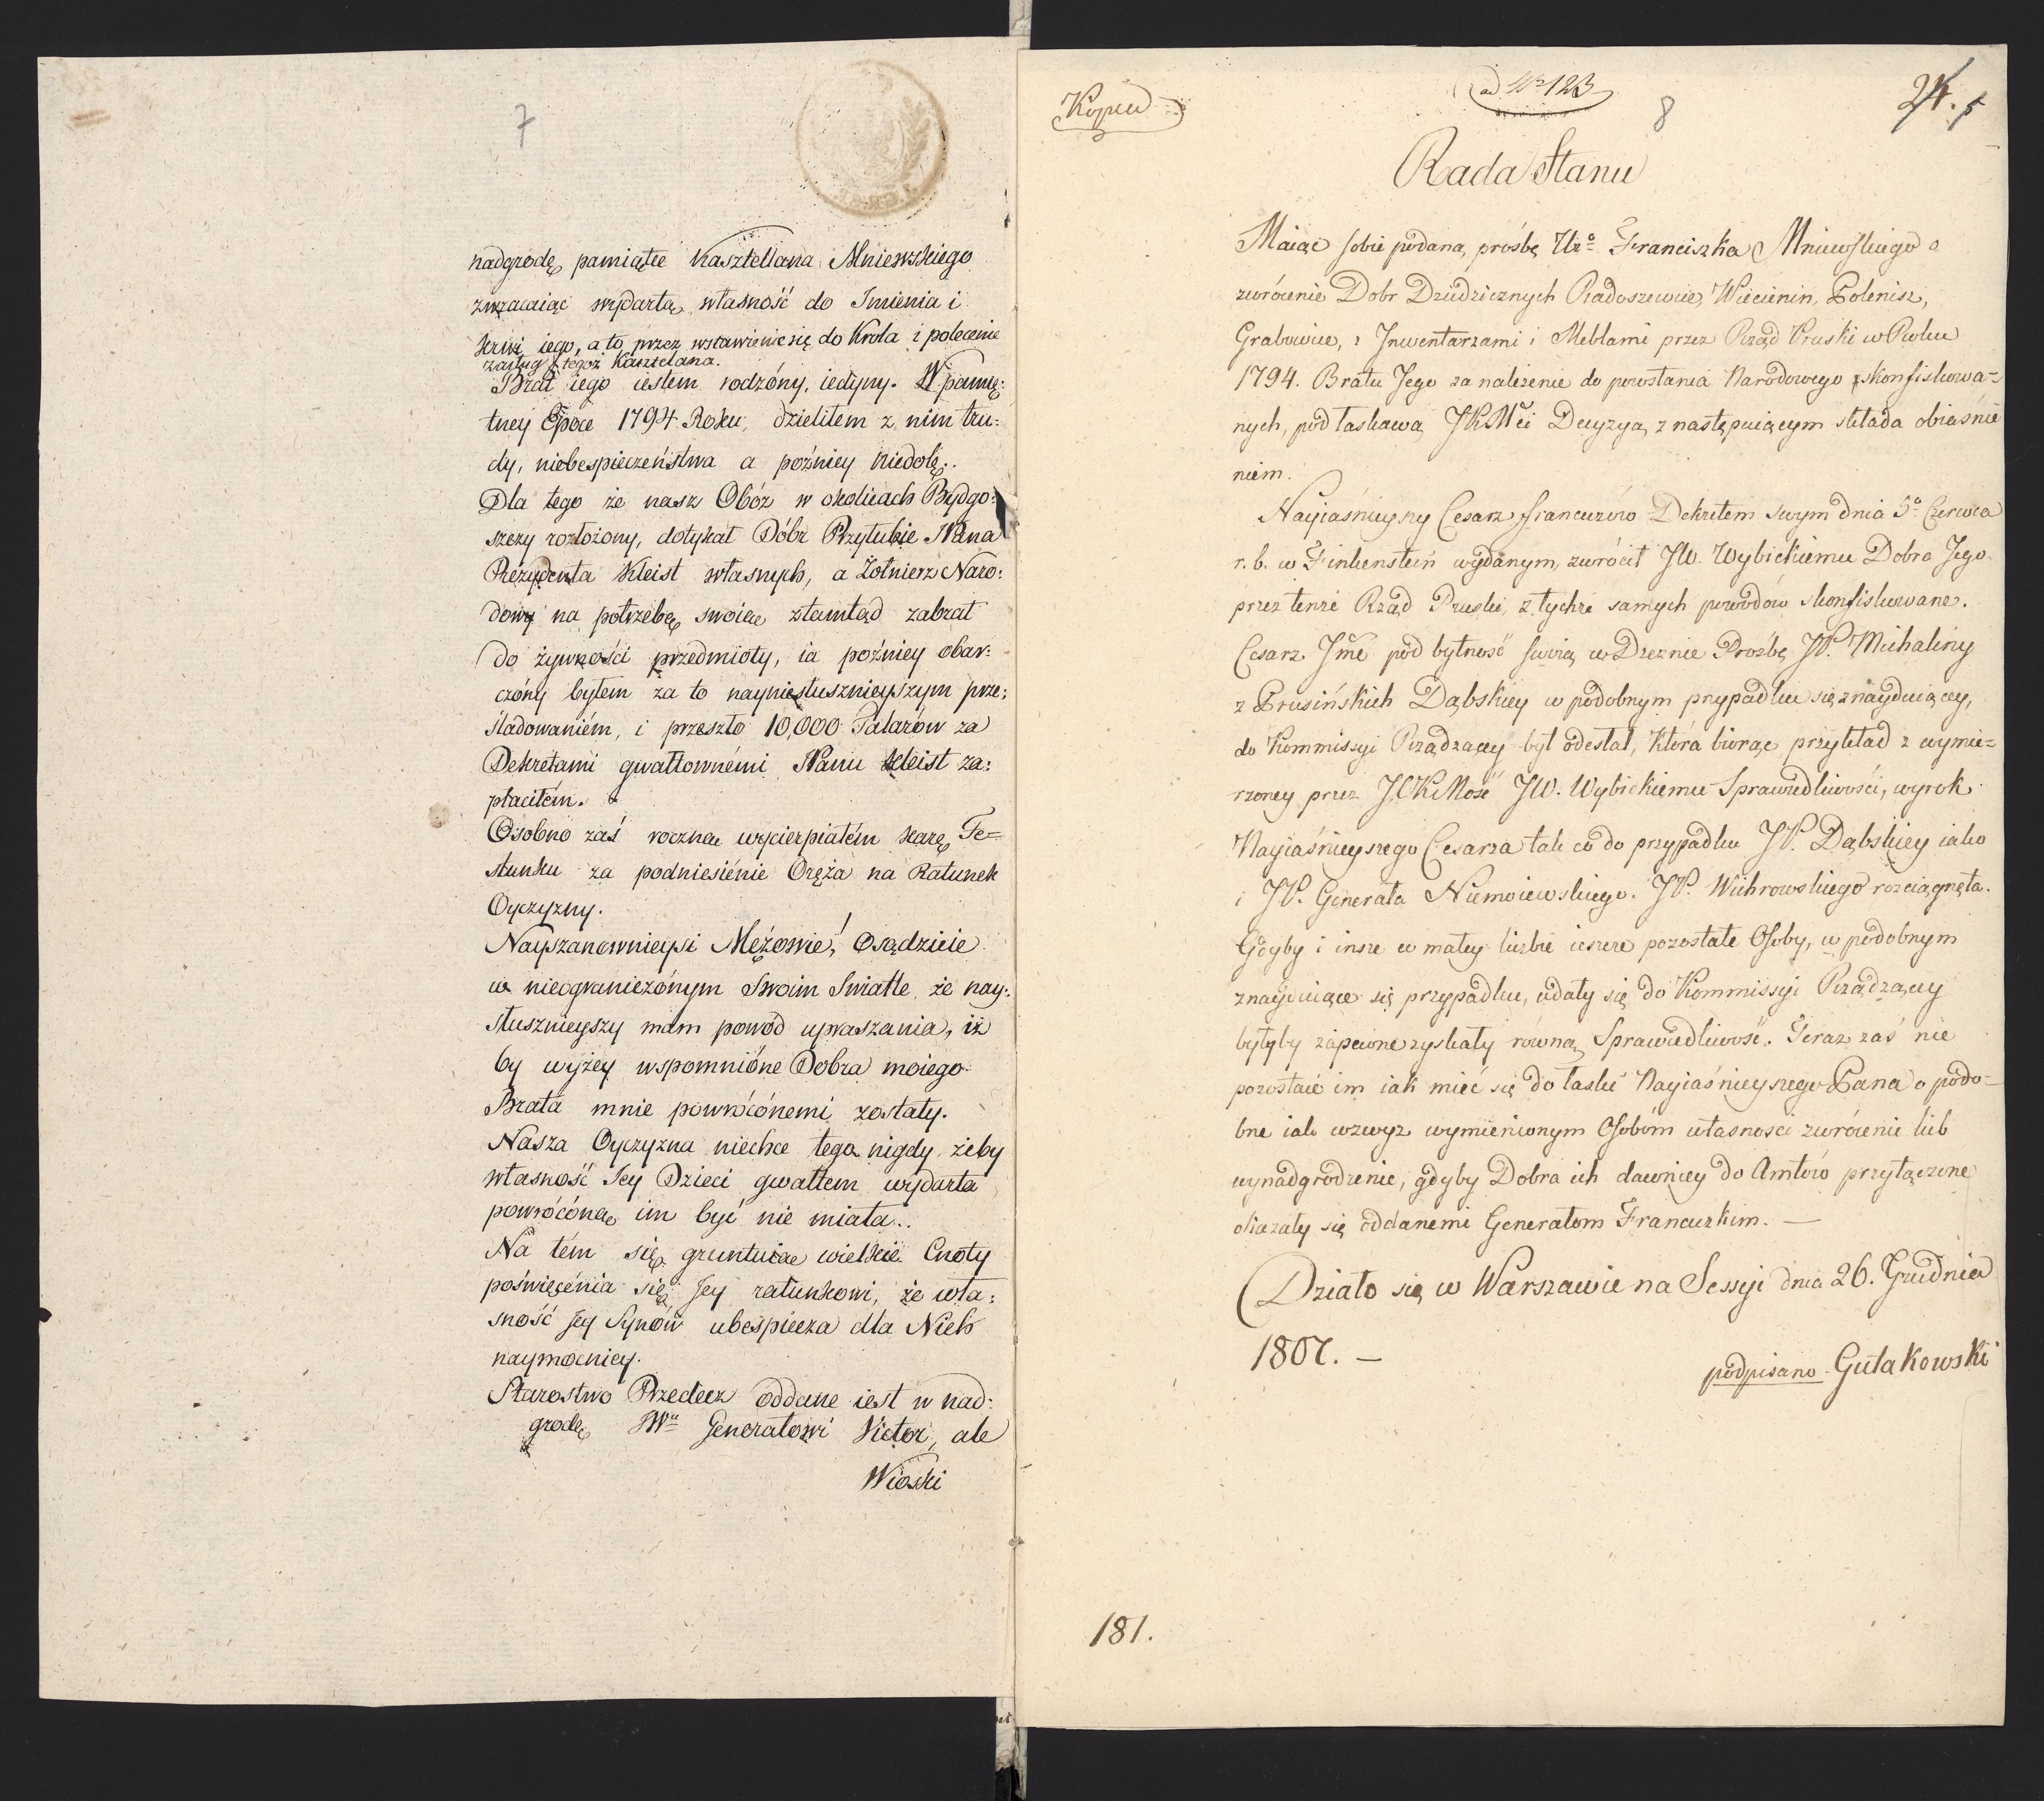 7
nadgrodę pamiątce Kasztellana Mniewskiego
zwracaiąc wydartą własność do Imienia i
krwi iego, a to przez wstawienie się do Krola i polecenie
zasług tegoż Kasztelana.
Brat iego iestem rodzóny, iedyny. W pamię:
tney Epoce 1794. Roku, dzieliłem z nim tru:
dy, niebespieczeństwa a poźniey niedolę..
Dla tego że nasz Obóz w okolicach Bydgo:
szczy rozłożony, dotykał Dóbr Przyłubie Pana
Prezydenta Kleist własnych, a Żołnierz Naro:
dowy na potrzebę swoię ztamtąd zabrał
do żywności przedmioty, ia poźniey obar:
czóny byłem za to nayniesłusznieyszym prze:
śladowaniém, i przeszło 10,000 Talarów za
Dekretami gwałtownémi Panu Kleist za:
płaciłém.
Osobno zaś roczną wycierpiałém karę Fe=
stunku za podniesiénie Oręża na Ratunek
Oyczyzny.
Nayszanownieysi Mężowie! Osądzicie
w nieograniczónym Swoim Świätle, że nay:
słusznieyszy mam powod upraszania, iż
by wyżey wspomnióne Dobra moiego
Brata mnie powrócónemi zostały.
Nasza Oyczyzna niechce tego nigdy, żeby
własność Jey Dzieci gwałtem wydarta
powrócóną im być nie miała..
Na tém się gruntuią wielkie Cnoty
poświęcénia się Jey ratunkowi, że wła:
sność Jey Synów ubespiecza dla Nich
naymocniey.
Starostwo Przedecz oddane iest w nad:
grodę JWu Generałowi Victor, ale
Wioski
Kopia
ad No 123
8
24. 5
Rada Stanu
Maiąc sobie podaną prośbę Uro Franciszka Mniewskiego o
zwrócenie Dobr Dziedzicznych Radoszewice, Wiecinin, Polenisz,
Grabowice, z Inwentarzami i Meblami przez Rząd Pruski w Roku
1794. Bratu Jego za należenie do powstania Narodowego skonfiskowa=
nych, pod łaskawą JKMci Decyzyą z następuiącym składa obiaśnie
niem.
Nayiaśnieyszy Cesarz francuzów Dekretem swym dnia 5o Czerwca
r. b. w Finkenstein wydanym, zwrócił JW. Wybickiemu Dobra Jego
przez tenże Rząd Pruski z tychże samych powodów skonfiskowane.
Cesarz Jmć pod bytność swoią w Dreznie Prośbę JP. Michaliny
z Prusińskich Dąbskiey w podobnym przypadku się znayduiącey,
do Kommissyi Rządzącey był odesłał, która biorąc przykład z wymie=
rzoney przez JCKMość JW. Wybickiemu Sprawiedliwości, wyrok
Nayiaśnieyszego Cesarza tak co do przypadku JP. Dąbskiey iako
i JP. Generała Niemoiewskiego. JP. Wichrowskiego rozciągnęła.
Gdyby i insze w małey liczbie ieszcze pozostałe Osoby, w podobnym
znayduiące się przypadku, udały się do Kommissyi Rządzącey
byłyby zapewne zyskały równą Sprawiedliwość. Teraz zaś nie
pozostaie im iak mieć się do łaski Nayiaśnieyszego Pana o podo=
bne iak wzwyż wymienionym Osobom własności zwrócenie lub
wynadgrodzenie, gdyby Dobra ich dawniey do Amtów przyłączone
okazały się oddanemi Generałom Francuzkim. —
Działo się w Warszawie na Sessyi dnia 26. Grudnia
1807. —
podpisano Gutakowski
181.